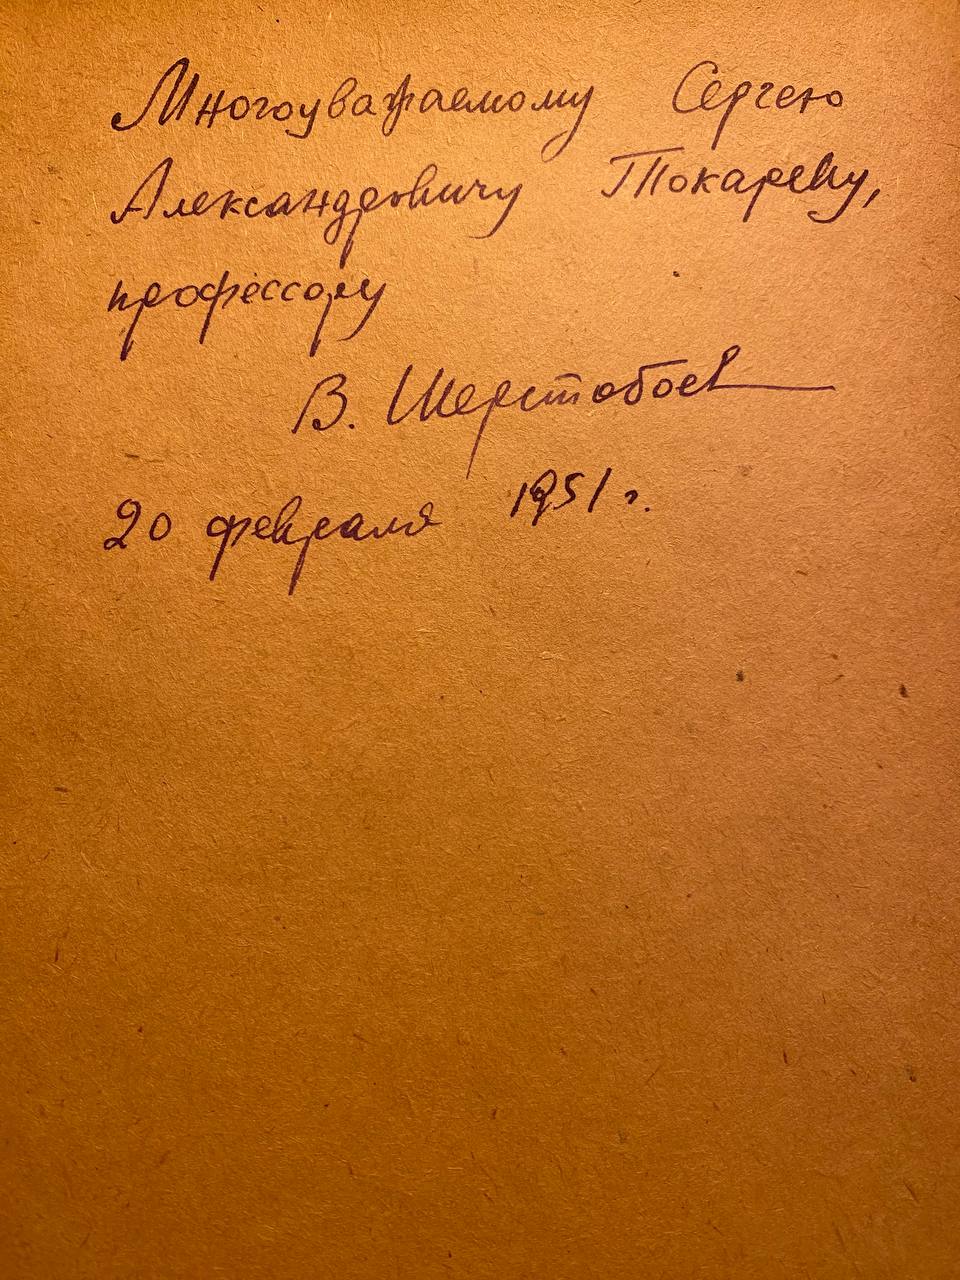 Многоуважаемому Сергею
Александровичу Токареву,
профессору
В. Шерстобоев
20 февраля 1951 г.